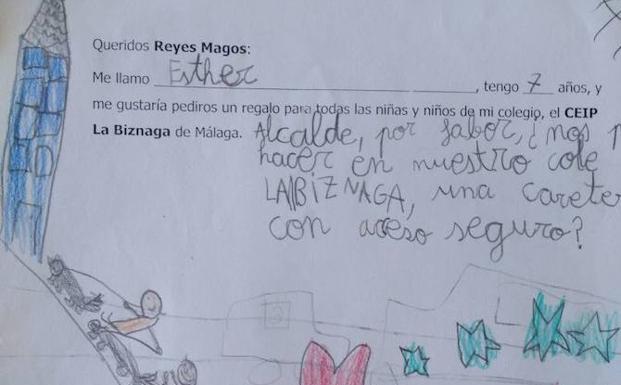 Queridos Reyes Magos:
Me llamo Esther, tengo 7 años, y
me gustaría pediros un regalo para todas las niñas y niños de mi colegio, el CEIP
La Biznaga de Málaga. Alcalde, por fabor, ¿nos
hacer en nuestro cole
LA BIZNAGA, una
con aceso seguro?